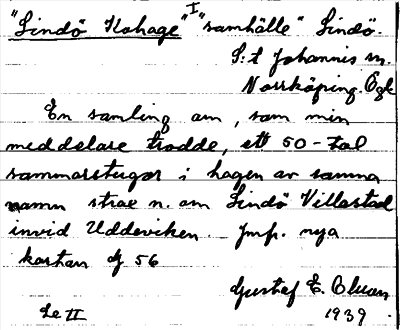 "Lindö Kohage" I "samhälle" Lindö.
S:t Johannis sn.
Norrköping. Ögl
En samling om, som min
meddelare trodde, ett 50-tal
sommarstugor i hagen av samma
namn strax n. om Lindö Villastad
invid Uddeviken. Jmfr. nya
kartan 56
Gustaf E.
Le II 1939.